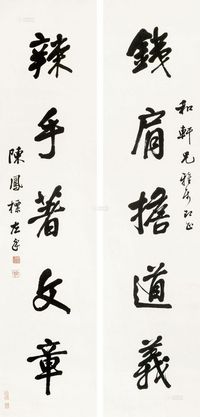 和軒兄雅屬即正
鐵肩擔道義
辣手著文章
陳鳳標左手